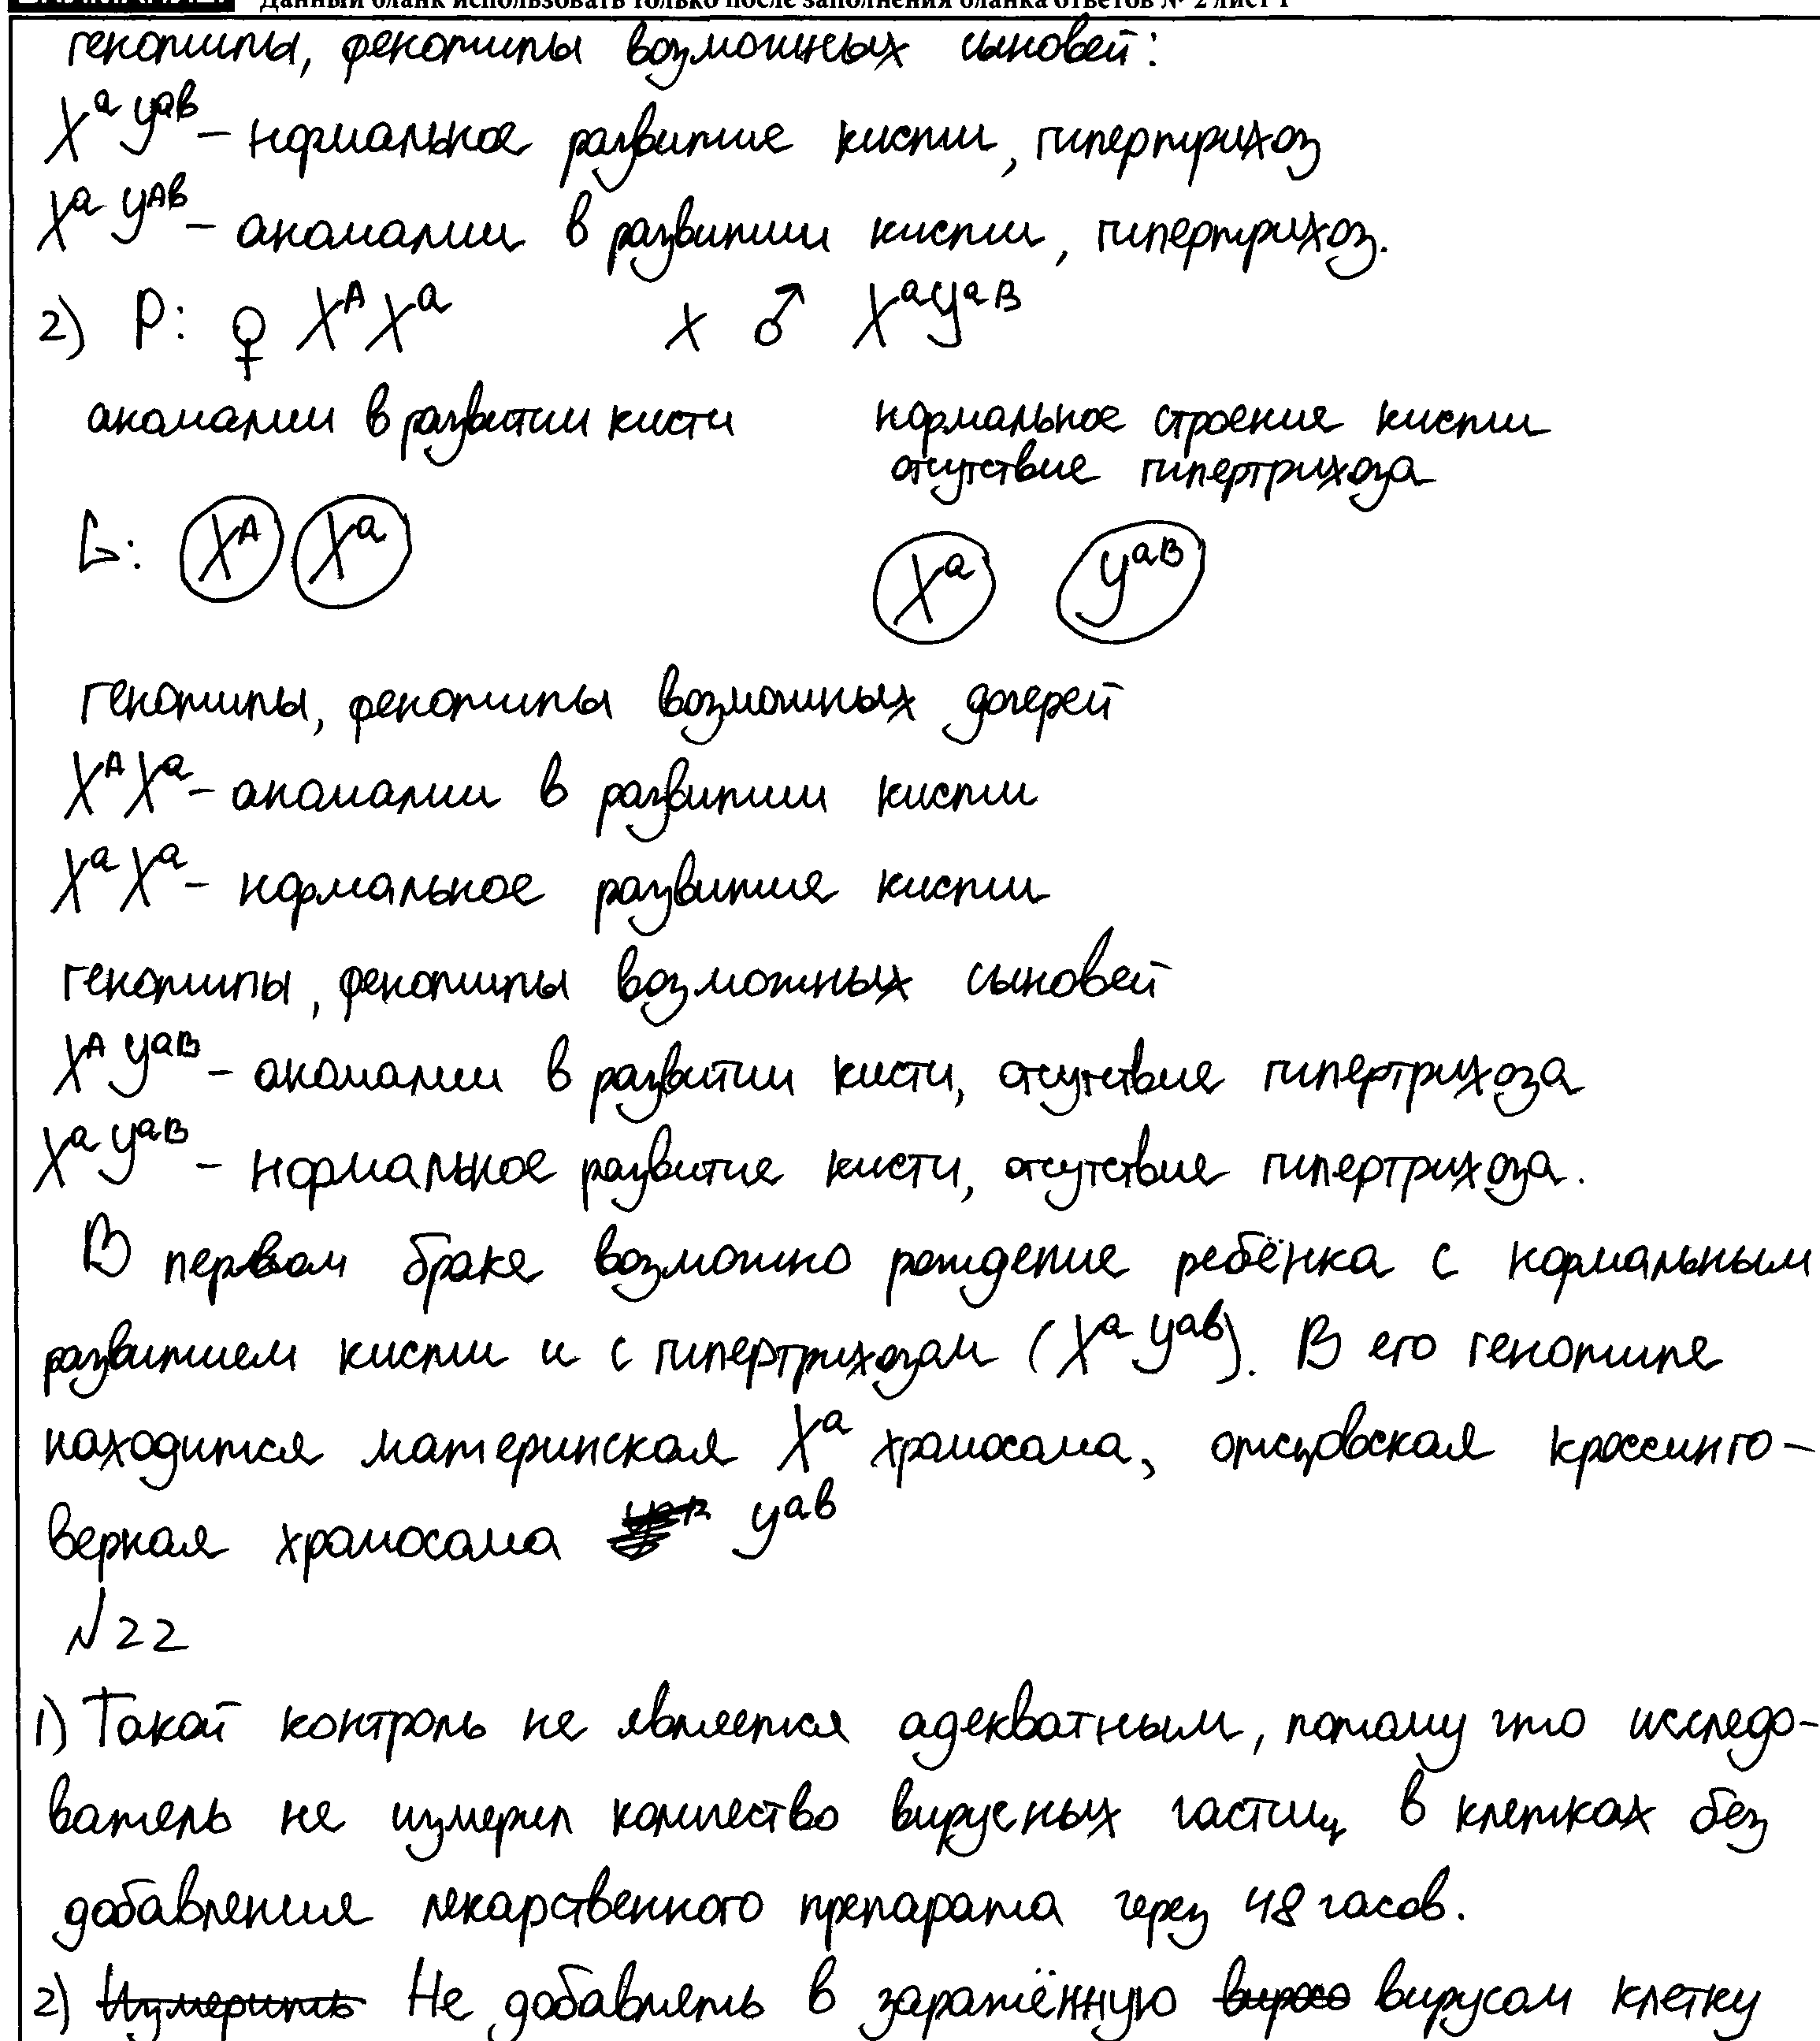 Данный бланк использовать только после заполнения бланка ответов № 2 лист 1
генотипы, фенотипы возможных сыновей:
Xᵃ Yᵃᵇ – нормальное развитие кисти, гипертрихоз
Xᵃ Yᴬᵇ – аномалии в развитии кисти, гипертрихоз.
2) P: ♀ Xᴬ Xᵃ x ♂ XᵃYᵃᴮ
аномалии в развитии кисти нормальное строения кисти
отсутствие гипертрихоза
G: Xᴬ Xᵃ Xᵃ Yᵃᴮ
генотипы, фенотипы возможных дочерей
Xᴬ Xᵃ – аномалии в развитии кисти
Xᵃ Xᵃ – нормальное развитие кисти
генотипы, фенотипы возможных сыновей
Xᴬ Yᵃᴮ – аномалии в развитии кисти, отсутствие гипертрихоза
Xᵃ Yᵃᴮ – нормальное развитие кисти, отсутствие гипертрихоза.
В первом браке возможно рождение ребёнка с нормальным
развитием кисти и с гипертрихозом (Xᵃ Yᵃᵇ). В его генотипе
находится материнская Xᵃ хромосома, отцовская кроссинго-
верная хромосома Yᵃᵇ
№22
1) Такой контроль не является адекватным, потому что исследо-
ватель не измерил количество вирусных частиц в клетках без
добавления лекарственного препарата через 48 часов.
2) Измерить Не добавлять в заражённую вирусом клетку